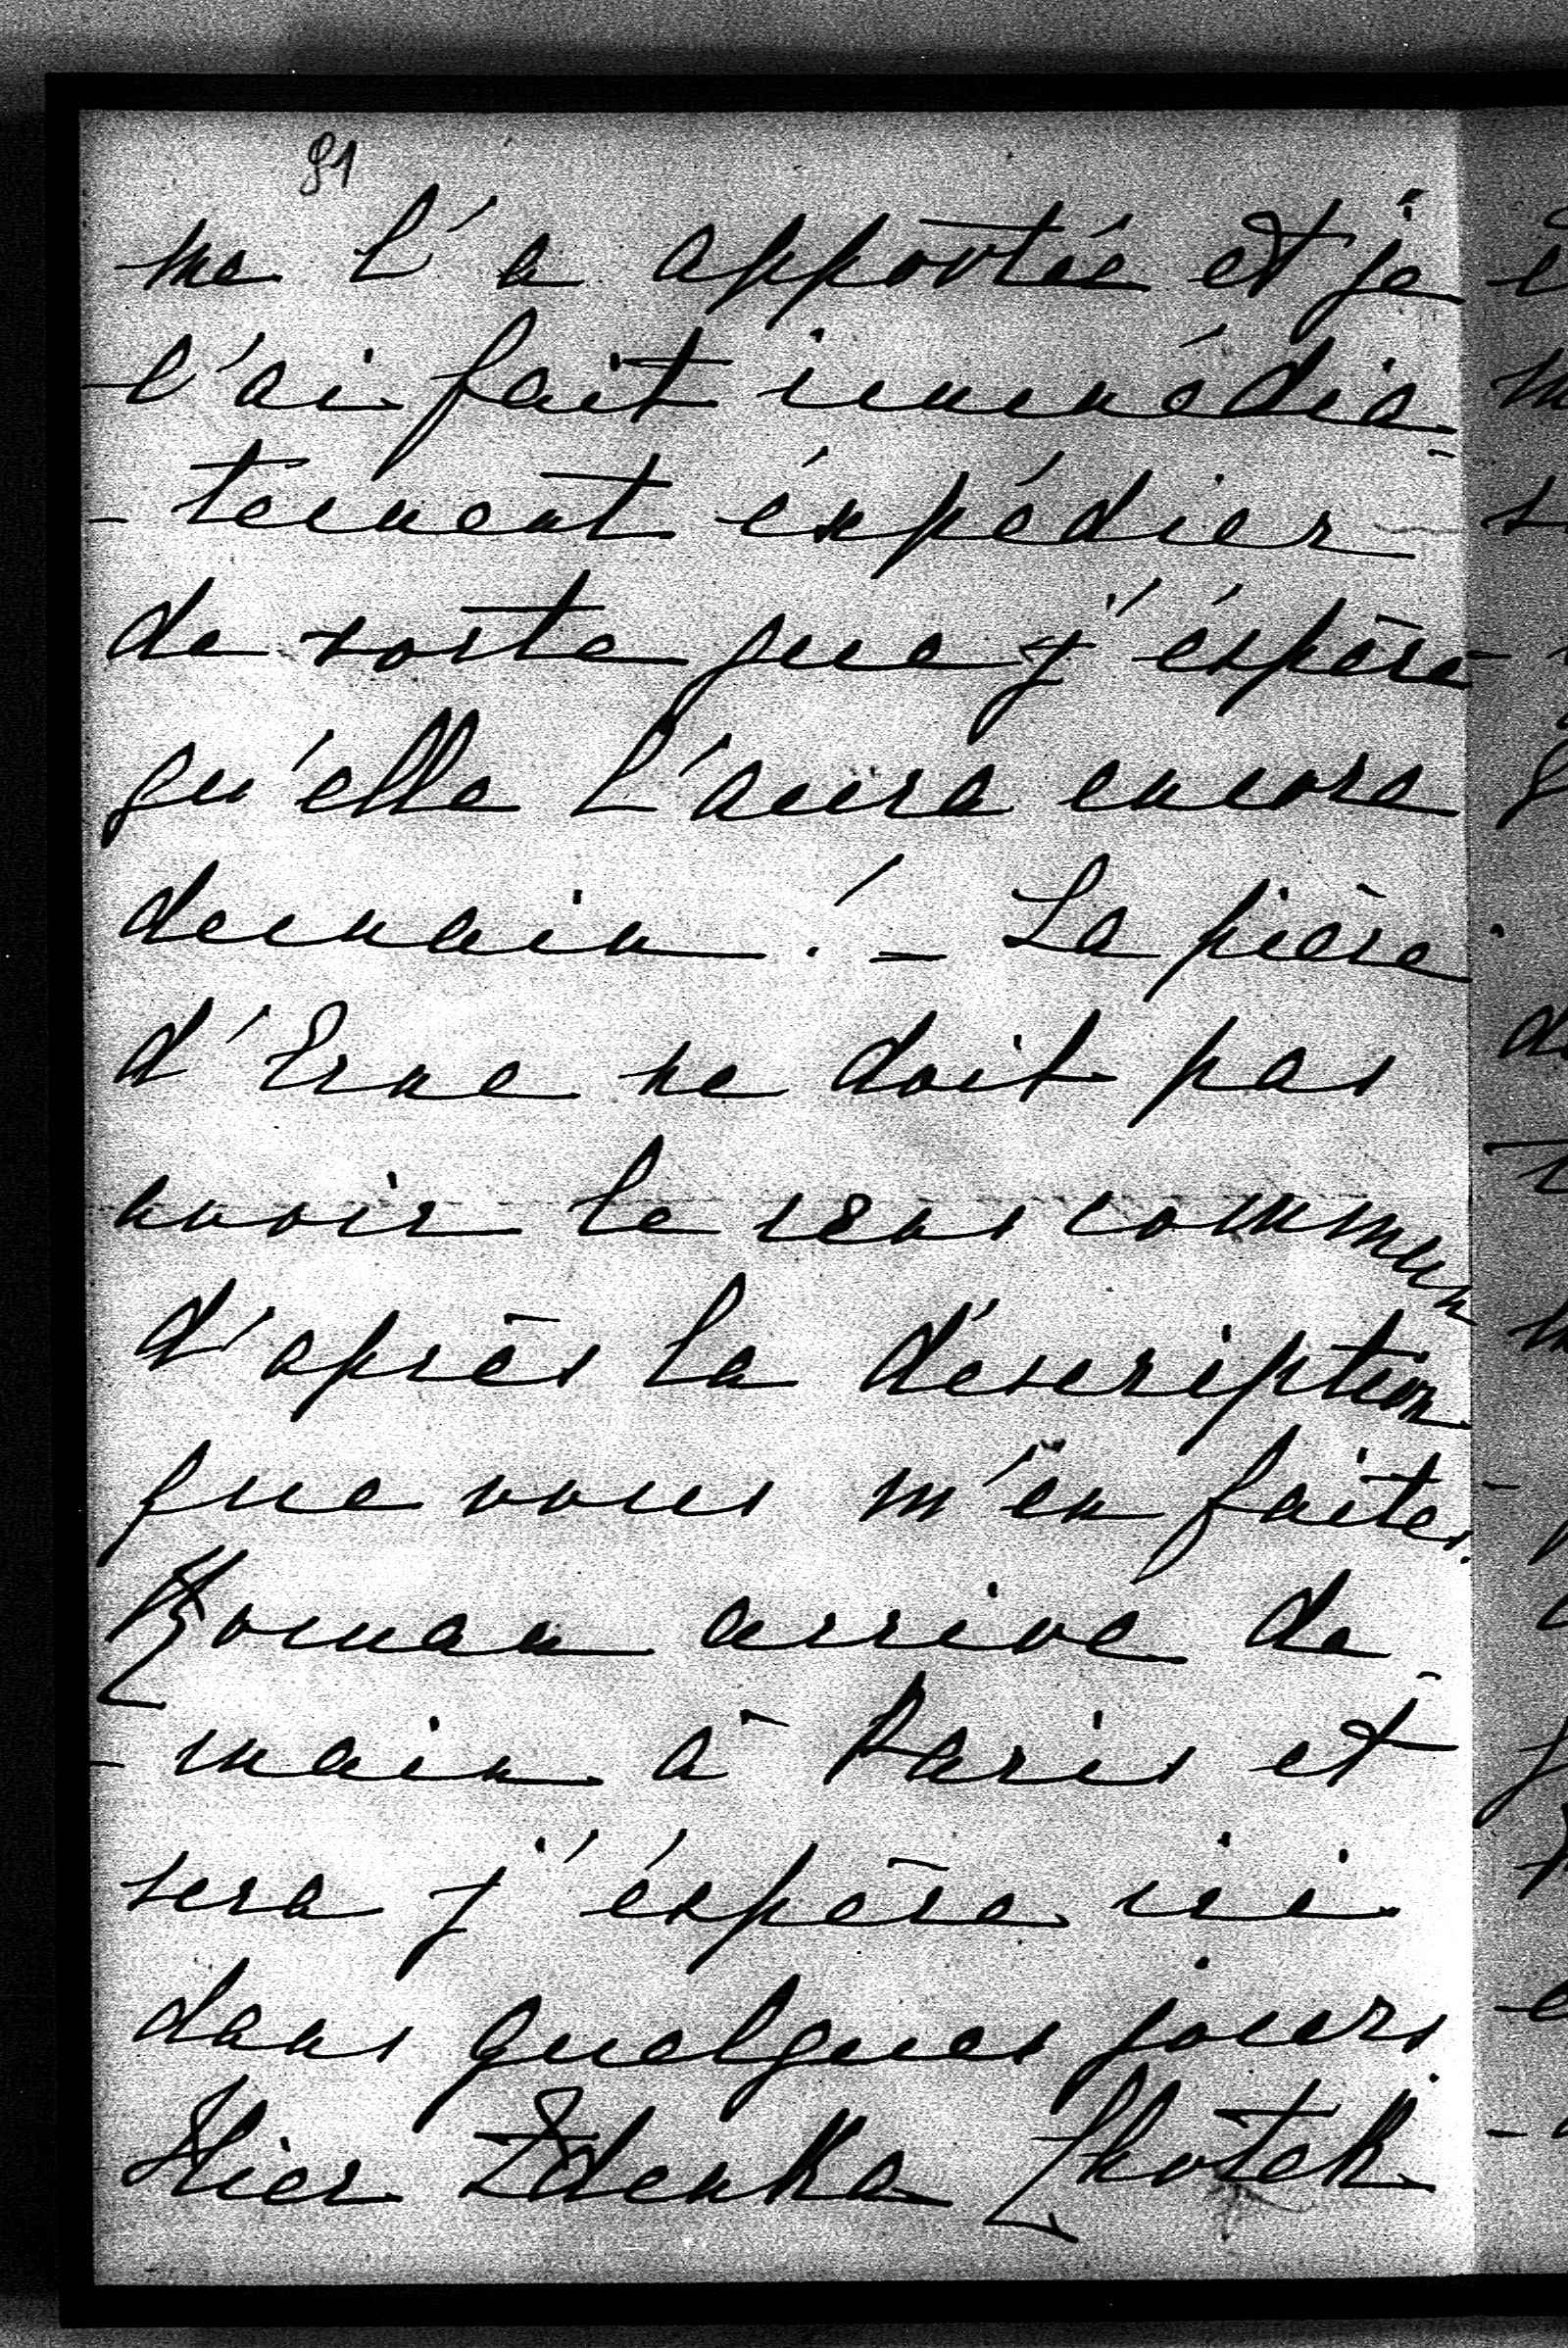 91
me l'a apportée et je
l'ai fait immédia
-tement éxpédier
de sorte que j'éspère
qu'elle l'aura encore
demain! - La pièce
d'Erne ne doit pas
avoir le sens commun
d'après la déscription
que vous m'en faites.
Roman arrive de
-main à Paris et
sera j'éspère ici
dans quelques jours.
Hier Zdenka Chotek